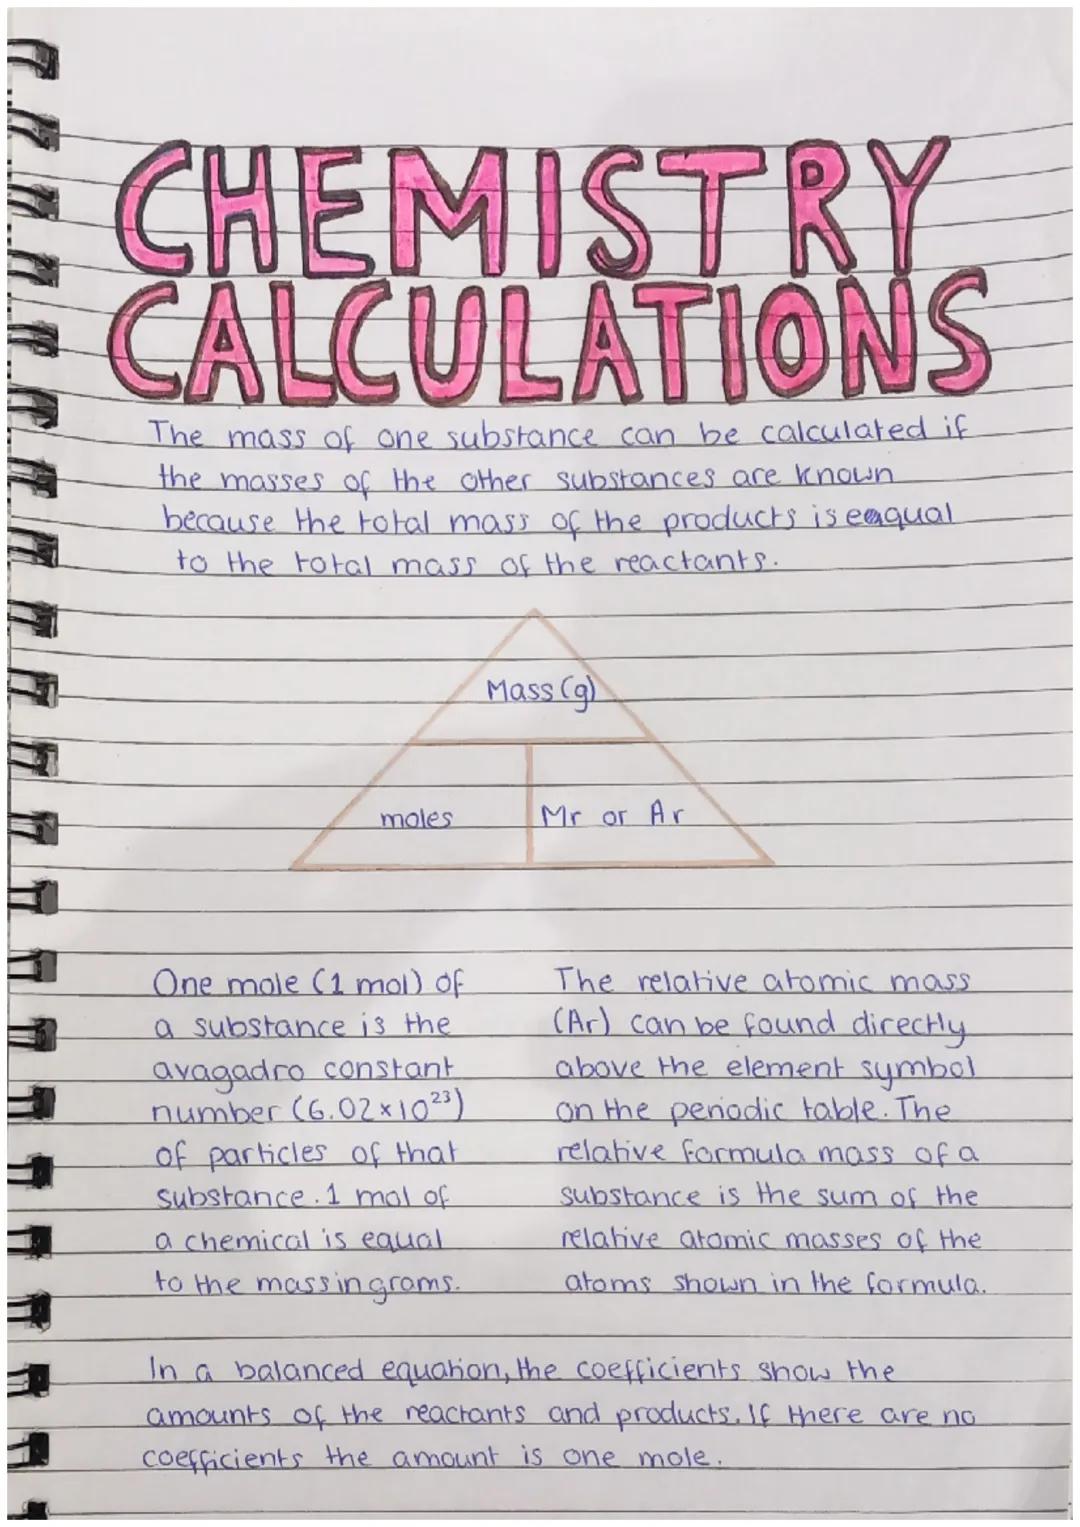 CHEMISTRY
CALCULATIONS
The mass of one substance can be calculated if
the masses of the other substances are known
because the total mass of the products is eaqual
to the total mass of the reactants.
Mass (g)
moles
Mr or Ar
One mole (1 mol) of
a substance is the
avagadro constant
number (6.02×10²³)
of particles of that
substance. 1 mol of
a chemical is equal
to the mass in grams.
The relative atomic mass
(Ar) can be found directly
above the element symbol
on the periodic table. The
relative formula mass of a
substance is the sum of the
relative atomic masses of the
atoms shown in the formula.
In a balanced equation, the coefficients show the
amounts of the reactants and products. If there are no
coefficients the amount is one mole.